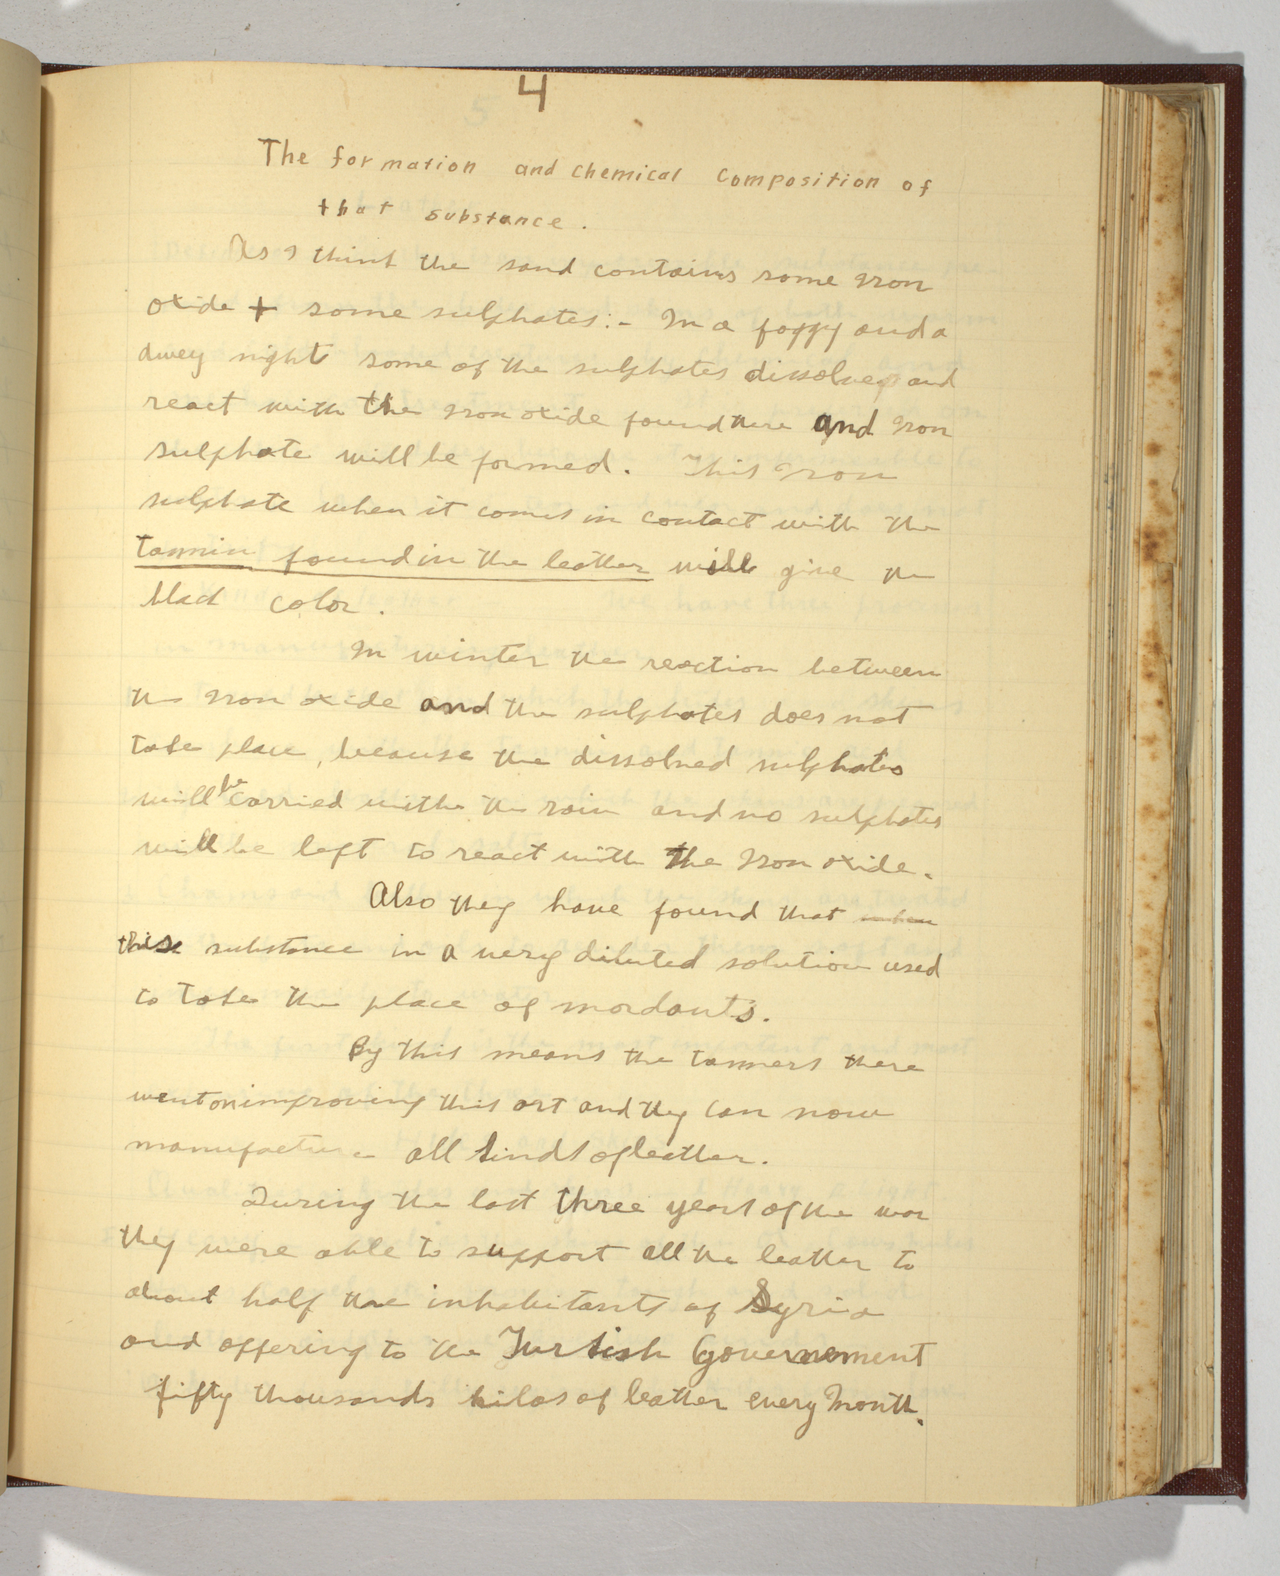 4
The formation and chemical composition of
that substance.
As I think the sand contains some Iron
oxide + some sulphates:- In a foggy and a
dwey night some of the sulphates dissolves and
react with the Iron oxide found there and Iron
sulphate will be formed. This Iron
sulphate when it comes in contact with the
tannin found in the leather will give the
black color.
In winter the reaction between
the Iron oxide and the sulphates does not
take place, because the dissolved sulphates
will be carried withe the rain and no sulphates
will be left to react with the Iron oxide.
Also they have found that when
this substance in a very diluted solution used
to take the place of mordants.
By this means the tanners there
went on improving this art and they can now
manufacture all kinds of leather.
During the last three years of the war
they were able to support all the leather to
about half the inhabitants of Syria
and offering to the Turkish Governement
fifty thousands kilos of leather every Month.